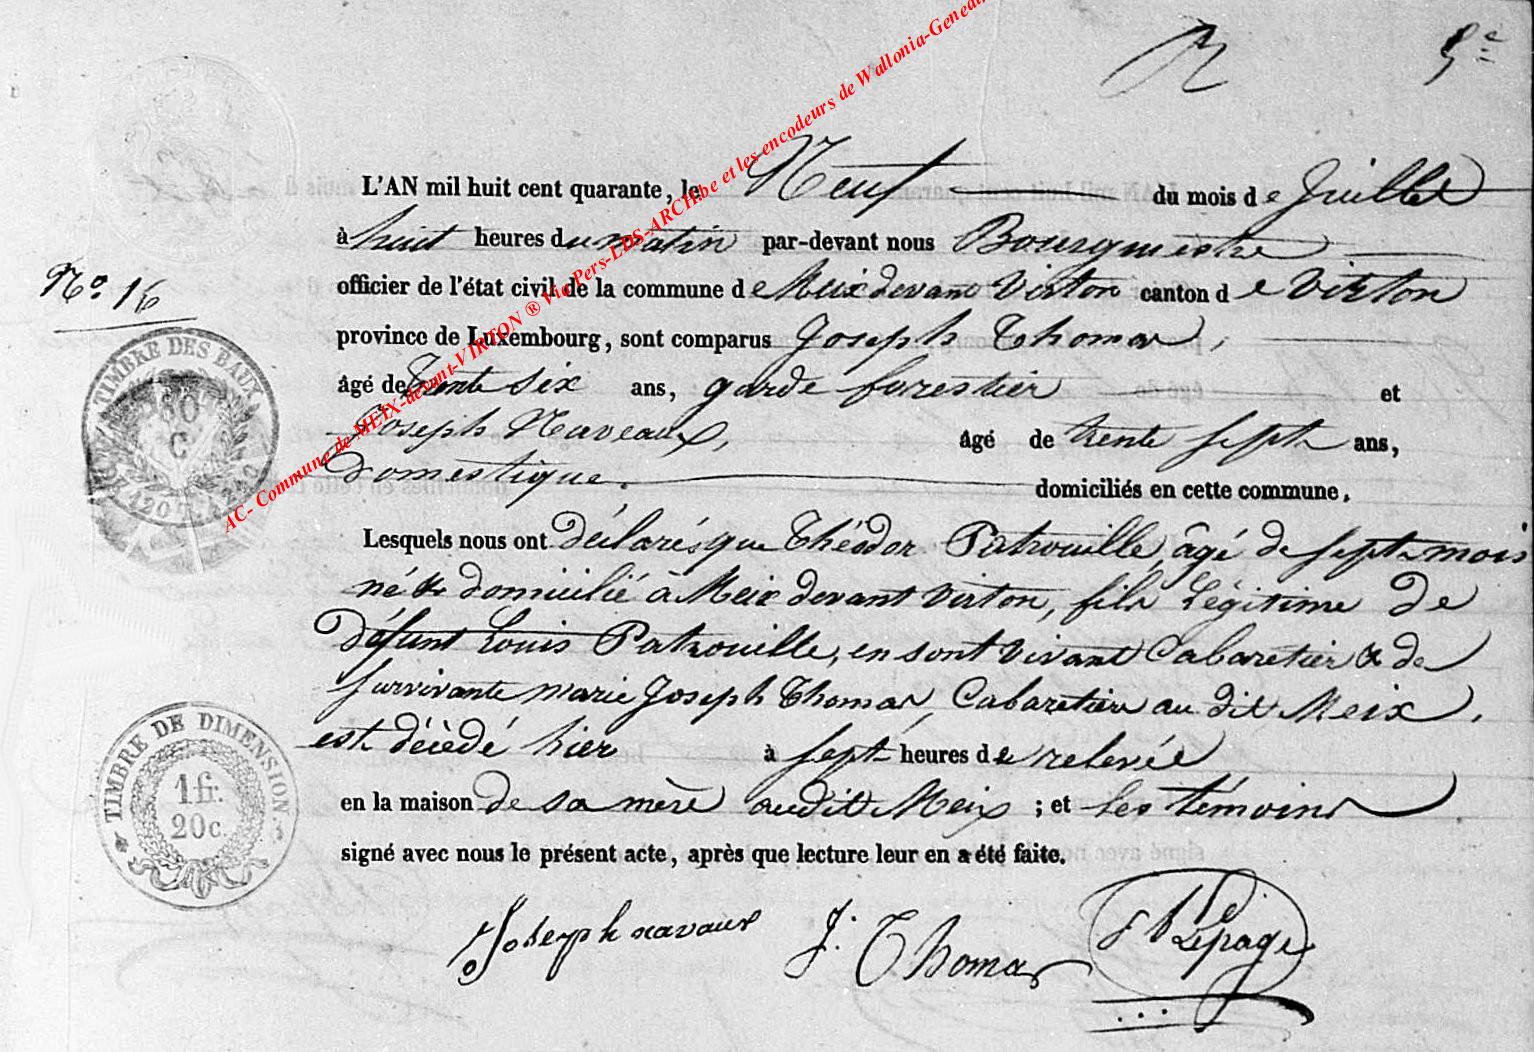 5e
L'AN mil huit cent quarante, le Neuf du mois de Juillet
à huit heures du matin par-devant nous Bourgmestre
officier de l'état civil de la commune de Meix devant Virton canton de Virton
No. 16
province de Luxembourg, sont comparus Joseph Thomas,
âgé de trente six ans, garde forestier et
Joseph Naveaux, âgé de trente sept ans,
Domestique. domiciliés en cette commune.
Lesquels nous ont déclarés que Théodor Patrouille, âgé de sept mois
né & domicilié à Meix devant Virton, fils Légitime de
défunt Louis Patrouille, en sont vivant Cabaretier & de
survivante marie Joseph Thomas, Cabaretière au dit Meix.
est décédé hier à sept heures de relevée
en la maison de sa mère audit Meix ; et les témoins
signé avec nous le présent acte, après que lecture leur en a été faite.
Joseph navaux J. Thomas Lepage
TIMBRE DES EAUX
60
C
TIMBRE DE DIMENSION.
1 fr.
20 c.
AC- Commune de MEIX-devant-VIRTON ® Via Pers-LDS-ARCH.be et les encodeurs de Wallonia-Genealo